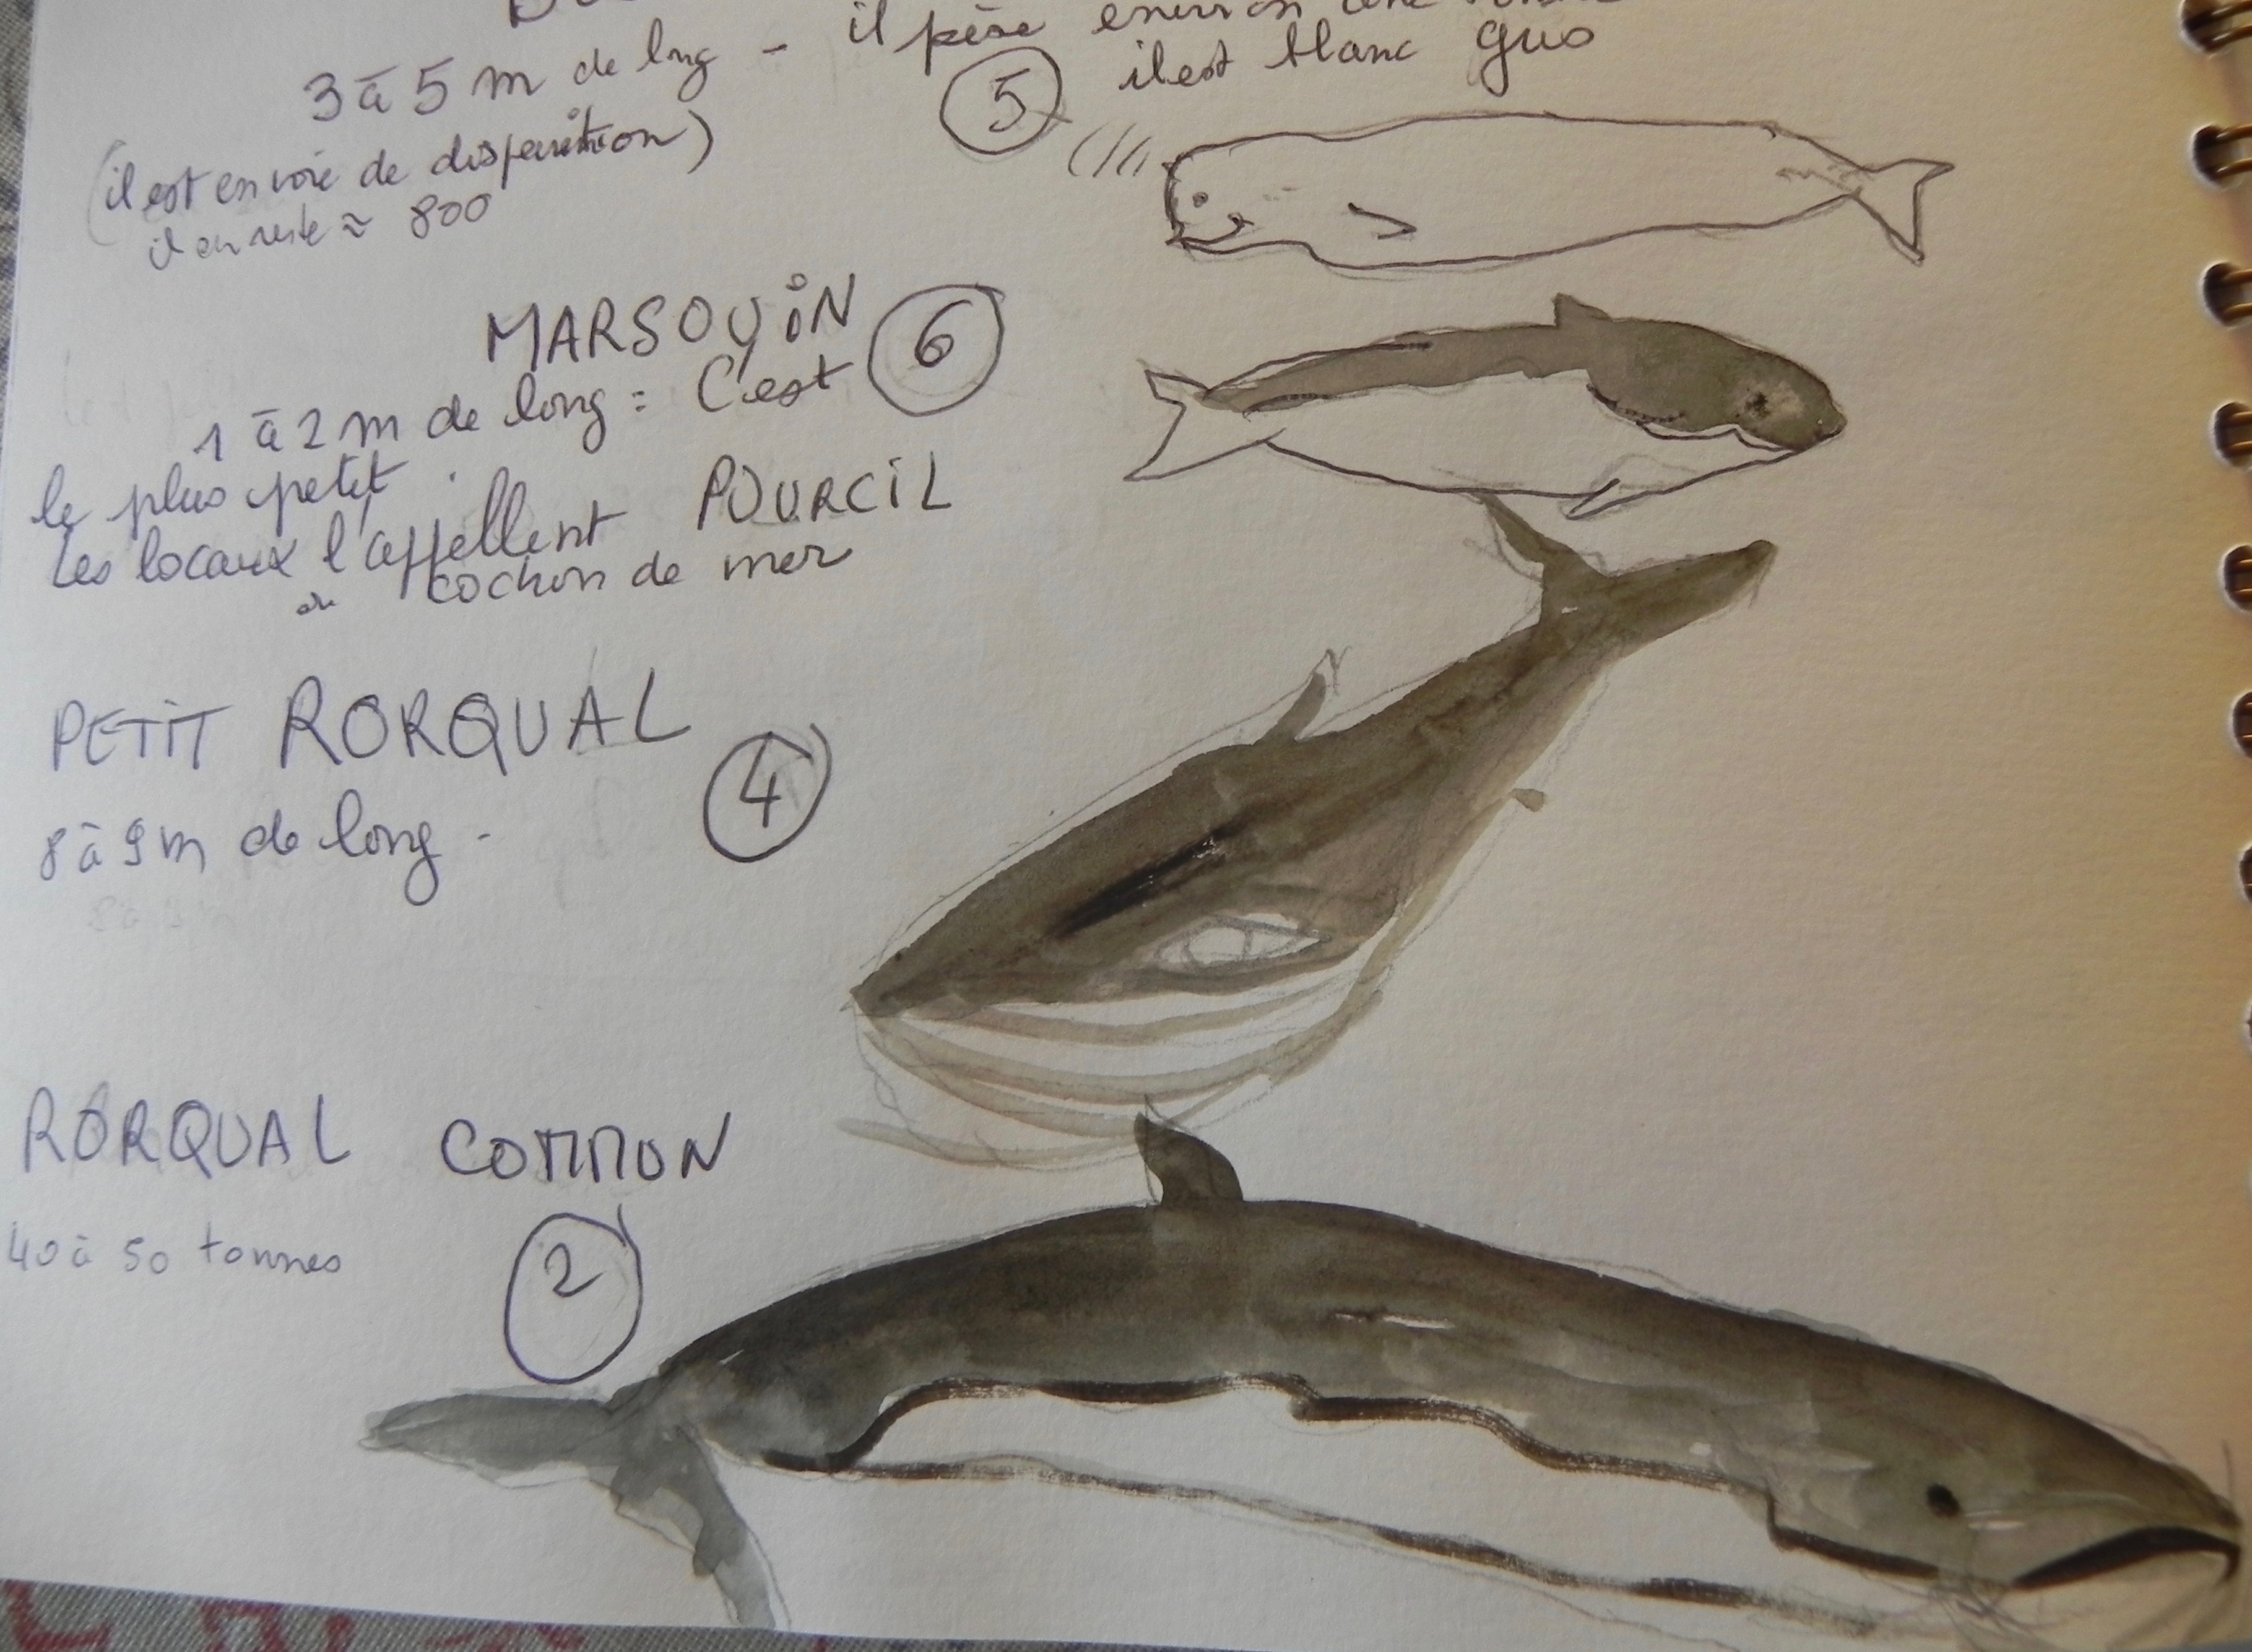 3 à 5 m de lng - il pèse environ une
(il est en voie de disparition)
il en reste ≈ 800
5
il est blanc gris
MARSOUIN
6
1 à 2 m de long = C'est
le plus petit.
Les locaux l'appellent POURCIL
ou cochon de mer
PETIT RORQUAL
4
8 à 9 m de long -
RORQUAL COMMUN
2
40 à 50 tonnes